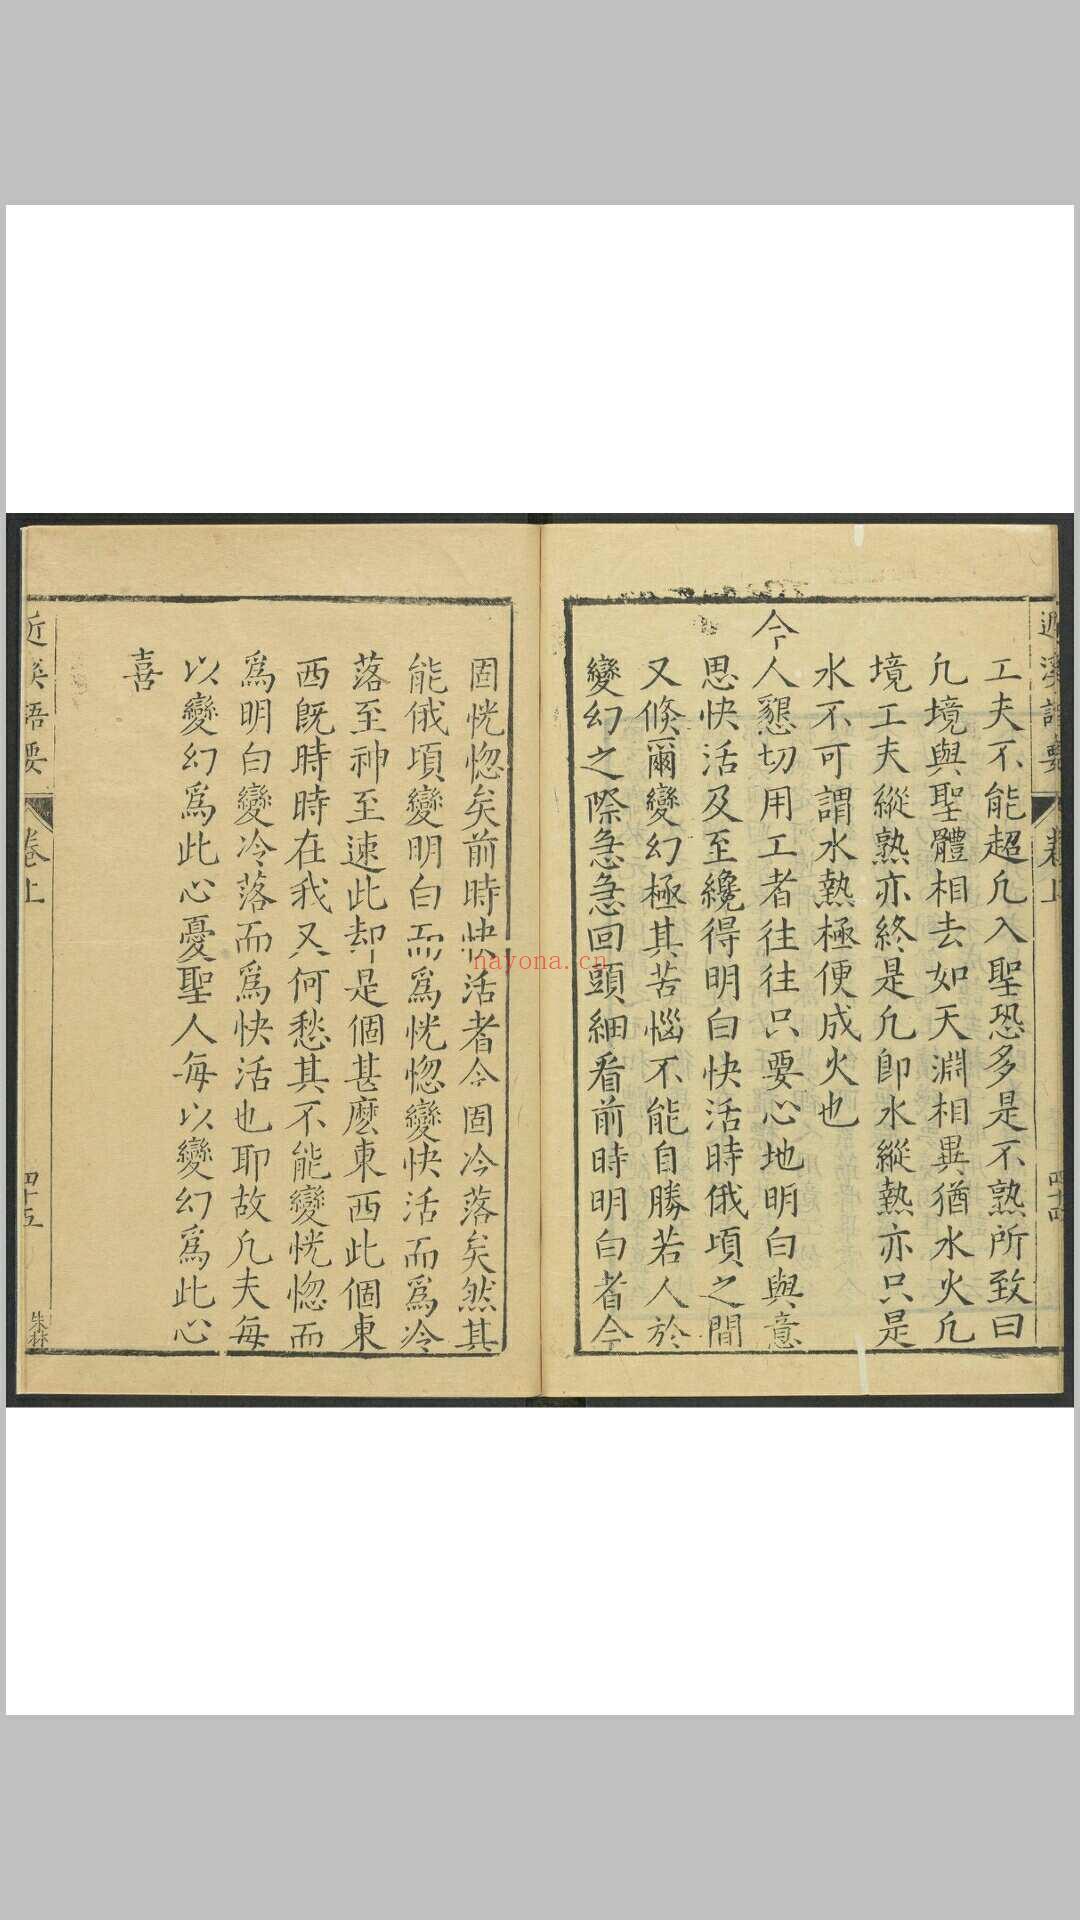 近溪語要 卷上 四十四
工夫不能超凢入聖恐多是不熟所致曰
凢境與聖體相去如天淵相異猶水火凢
境工夫縱熟亦終是凢卽水縱熱亦只是
水不可謂水熱極便成火也
今人懇切用工者往往只要心地明白與意
思快活及至纔得明白快活時俄頃之間
又倐爾變幻極其苦惱不能自勝若人於
變幻之際急急回頭細看前時明白者今
固恍惚矣前時快活者今固冷落矣然其
能俄頃變明白而爲恍惚變快活而爲冷
落至神至速此却是個甚麽東西此個東
西旣時時在我又何愁其不能變恍惚而
爲明白變冷落而爲快活也耶故凢夫每
以變幻爲此心憂聖人每以變幻爲此心
喜
近溪語要 卷上 四十五 朱林
nayona.cn